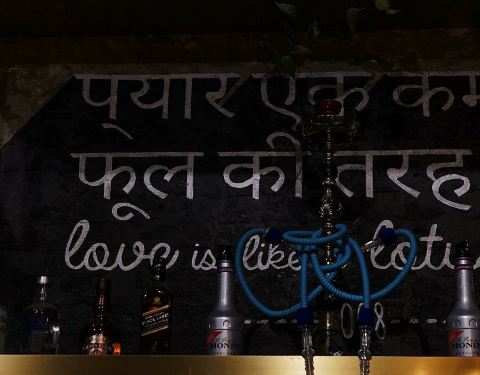 प्यार एक कम
फूल की तरह
love is like lotu
BLACK LABEL
MONIN
MONIN